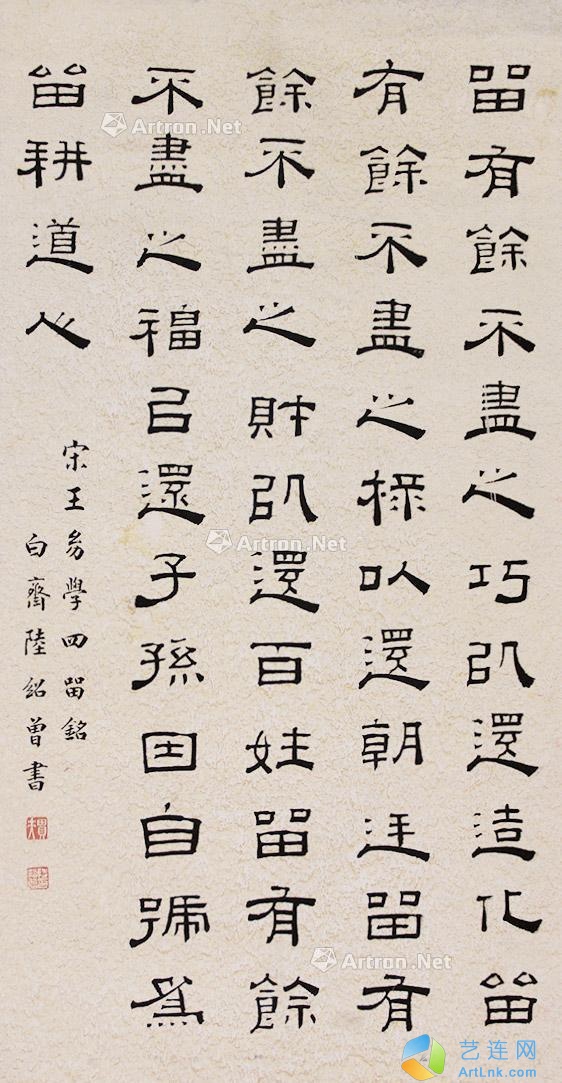 留有餘不盡之巧以還造化留
有餘不盡之祿以還朝廷留有
餘不盡之財以還百姓留有餘
不盡之福以還子孫因自號為
留耕道人
宋王易學四留銘
白齋陸紹曾書
Artron.Net
Artron.Net
Artron.Net
Artron.Net
艺连网
ArtLnk.com